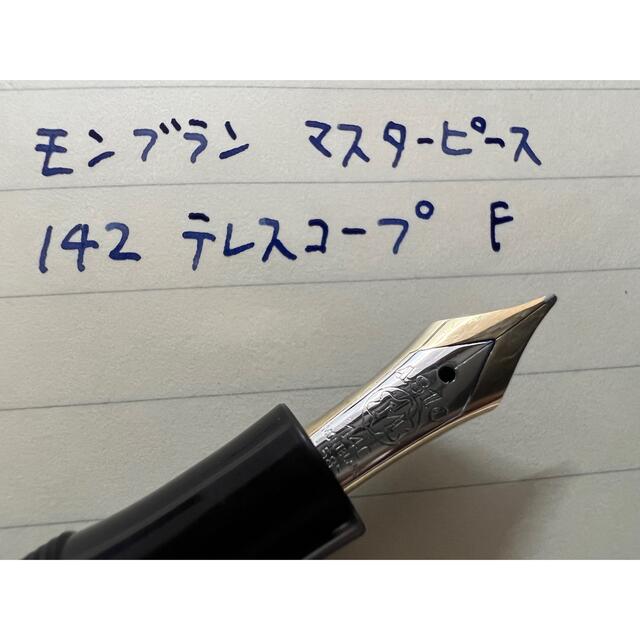 モンブラン マスターピース
142 テレスコープ F
4810
14C
585